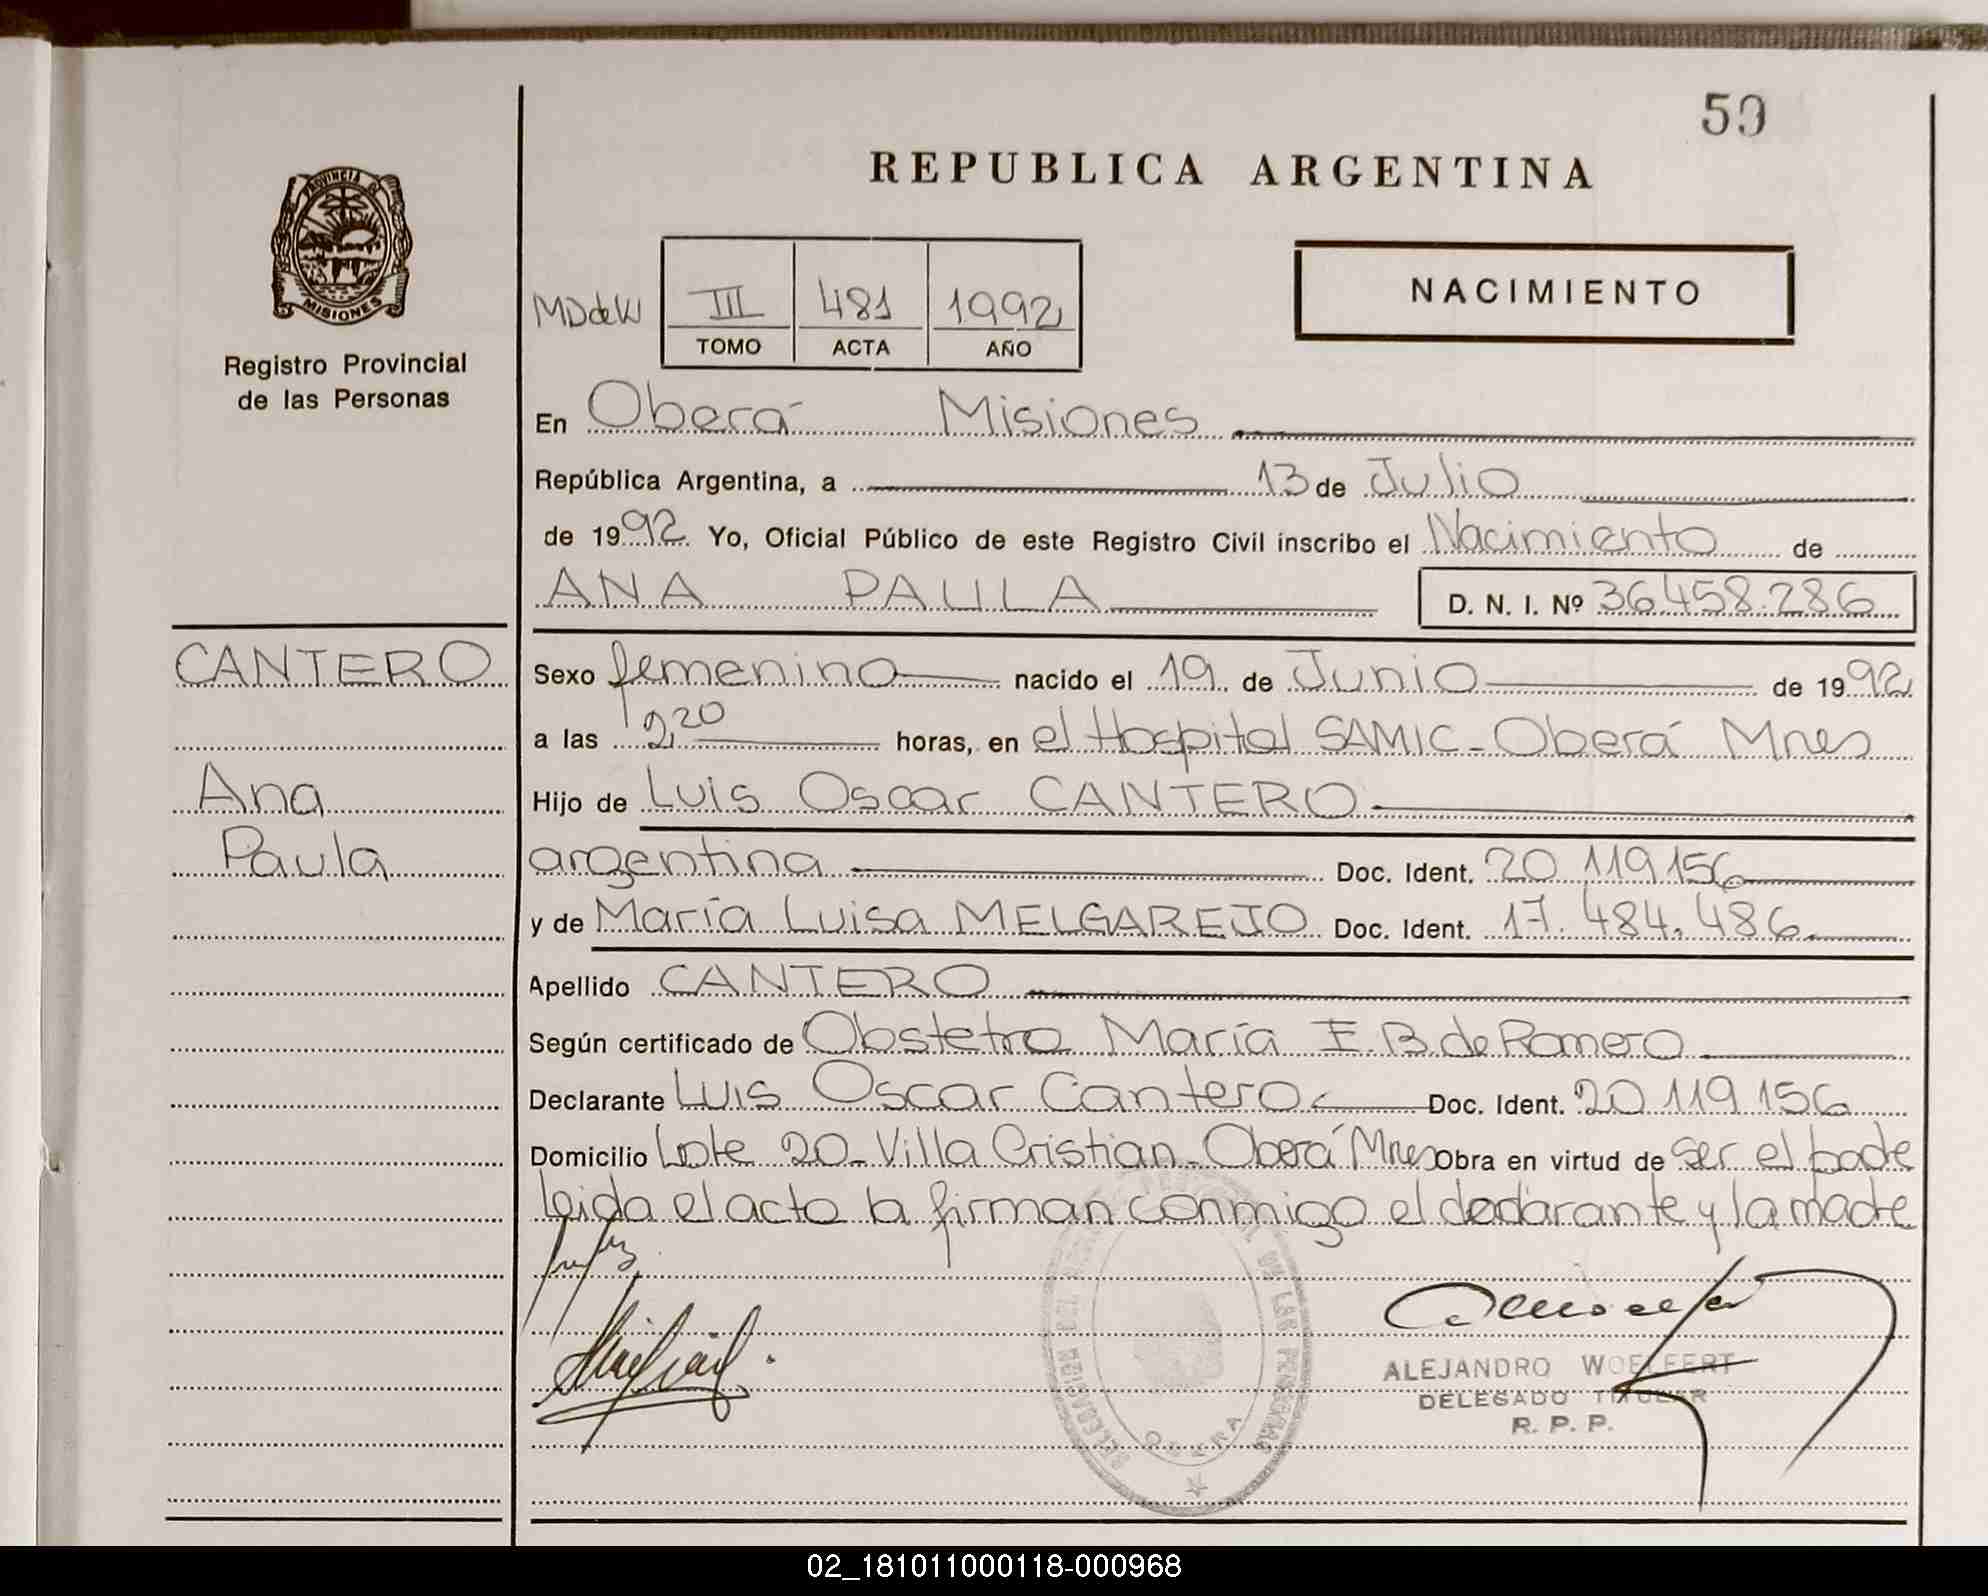 59
REPUBLICA ARGENTINA
PROVINCIA DE
MISIONES
Registro Provincial
de las Personas
MDdeW III 481 1992
TOMO ACTA AÑO
NACIMIENTO
En Oberá Misiones
República Argentina, a 13 de Julio
de 1992 Yo, Oficial Público de este Registro Civil inscribo el Nacimiento de
ANA PAULA D. N. I. Nº 36.458.286
CANTERO
Ana
Paula
Sexo femenino nacido el 19 de Junio de 1992
a las 2,20 horas, en el Hospital SAMIC-Oberá Mnes
Hijo de Luis Oscar CANTERO
argentina Doc. Ident. 20.119.156
y de María Luisa MELGAREJO Doc. Ident. 17.484.486
Apellido CANTERO
Según certificado de Obstetra María E.B. de Romero
Declarante Luis Oscar Cantero Doc. Ident. 20119156
Domicilio Lote 20-Villa Cristian-Oberá Mnes Obra en virtud de ser el padre
leida el acta la firman conmigo el declarante y la madre
ALEJANDRO WOELFERT
DELEGADO TITULAR
R. P. P.
OBERA
02_181011000118-000968